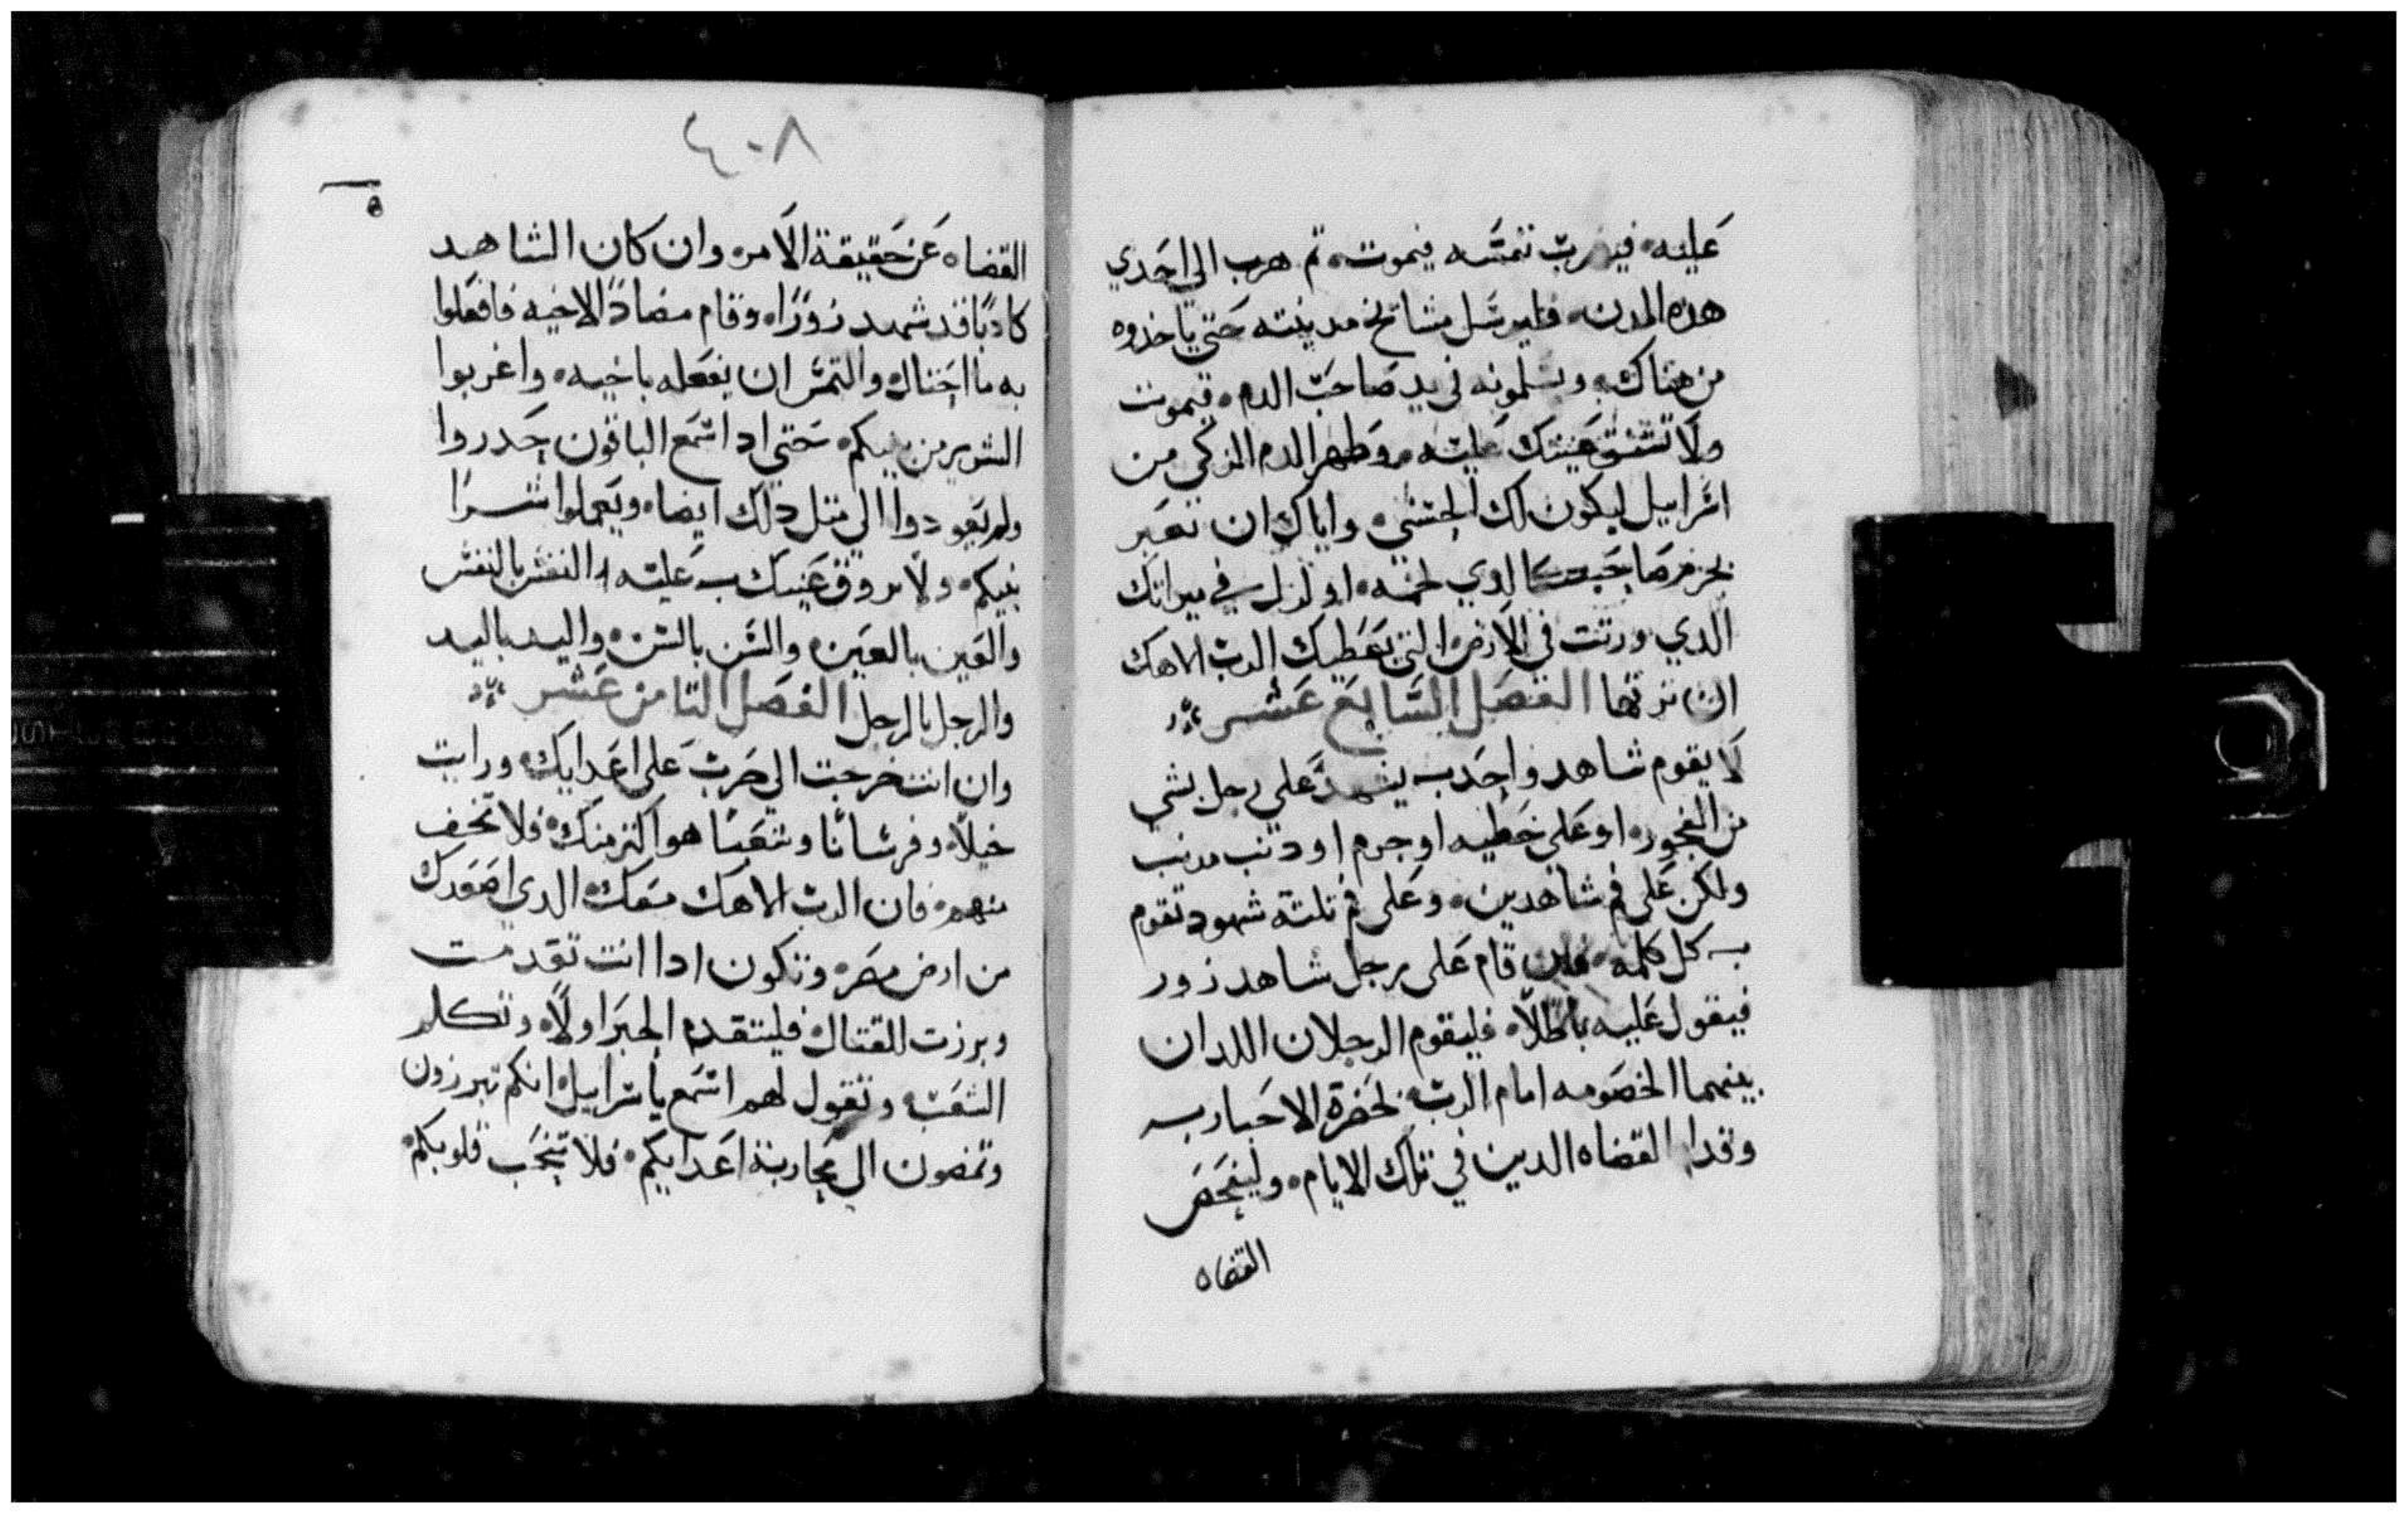 عليه فيضرب نفسه فيموت ثم هرب الي احدي
هذه المدن فليرسل مشايخ مدينته حتي ياخذوه
من هناك ويسلمونه في يد صاحب الدم فيموت
ولا تشفق عينك عليه وطهر الدم الزكي من
اسراييل ليكون لك الحسني واياك ان تغير
الدي ورتت في الارض التي يعطيك الرب الاهك
ان ترتها الفصل السابع عشر
لا يقوم شاهد واحد يشهد علي رجل بشي
من الفجور او علي خطيه او جرم او دنب مدنب
ولكن علي فم شاهدين وعلي فم تلتة شهود تقوم
كل كلمه فان قام علي رجل شاهد زور
فيقول عليه باطلاً فليقوم الرجلان اللدان
بينهما الخصومه امام الرب بحضرة الاحبار
وقدام القضاه الدين في تلك الايام وليفحص
القضاه
٤٠٨
القضاه عن حقيقة الامر وان كان الشاهد
كادبًا قد شهد زورًا وقام مضادًا لاخيه فافعلوا
به ما احتال والتمس ان يفعله باخيه واغربوا
الشرير من بينكم حتي ادا سمع الباقون حدروا
ولم يعودوا الي متل دلك ايضا ويعملوا شرًا
بينكم ولا عينك عليه النفس بالنفس
والعين بالعين والسن بالسن واليد باليد
والرجل بالرجل الفصل التامن عشر
وان انت خرجت الي حرب علي اعدايك ورايت
خيلاً وفرسانًا وشعبًا هو اكتر منك فلا تخف
منهم فان الرب الاهك معك الدي اصعدك
من ارض مصر وتكون ادا انت تقدمت
وبرزت للقتال فليتقدم الحبر اولاً وتكلم
الشعب وتقول لهم اسمع ياسراييل انكم تبرزون
وتمضون الي محاربة اعدايكم فلا تنخب قلوبكم